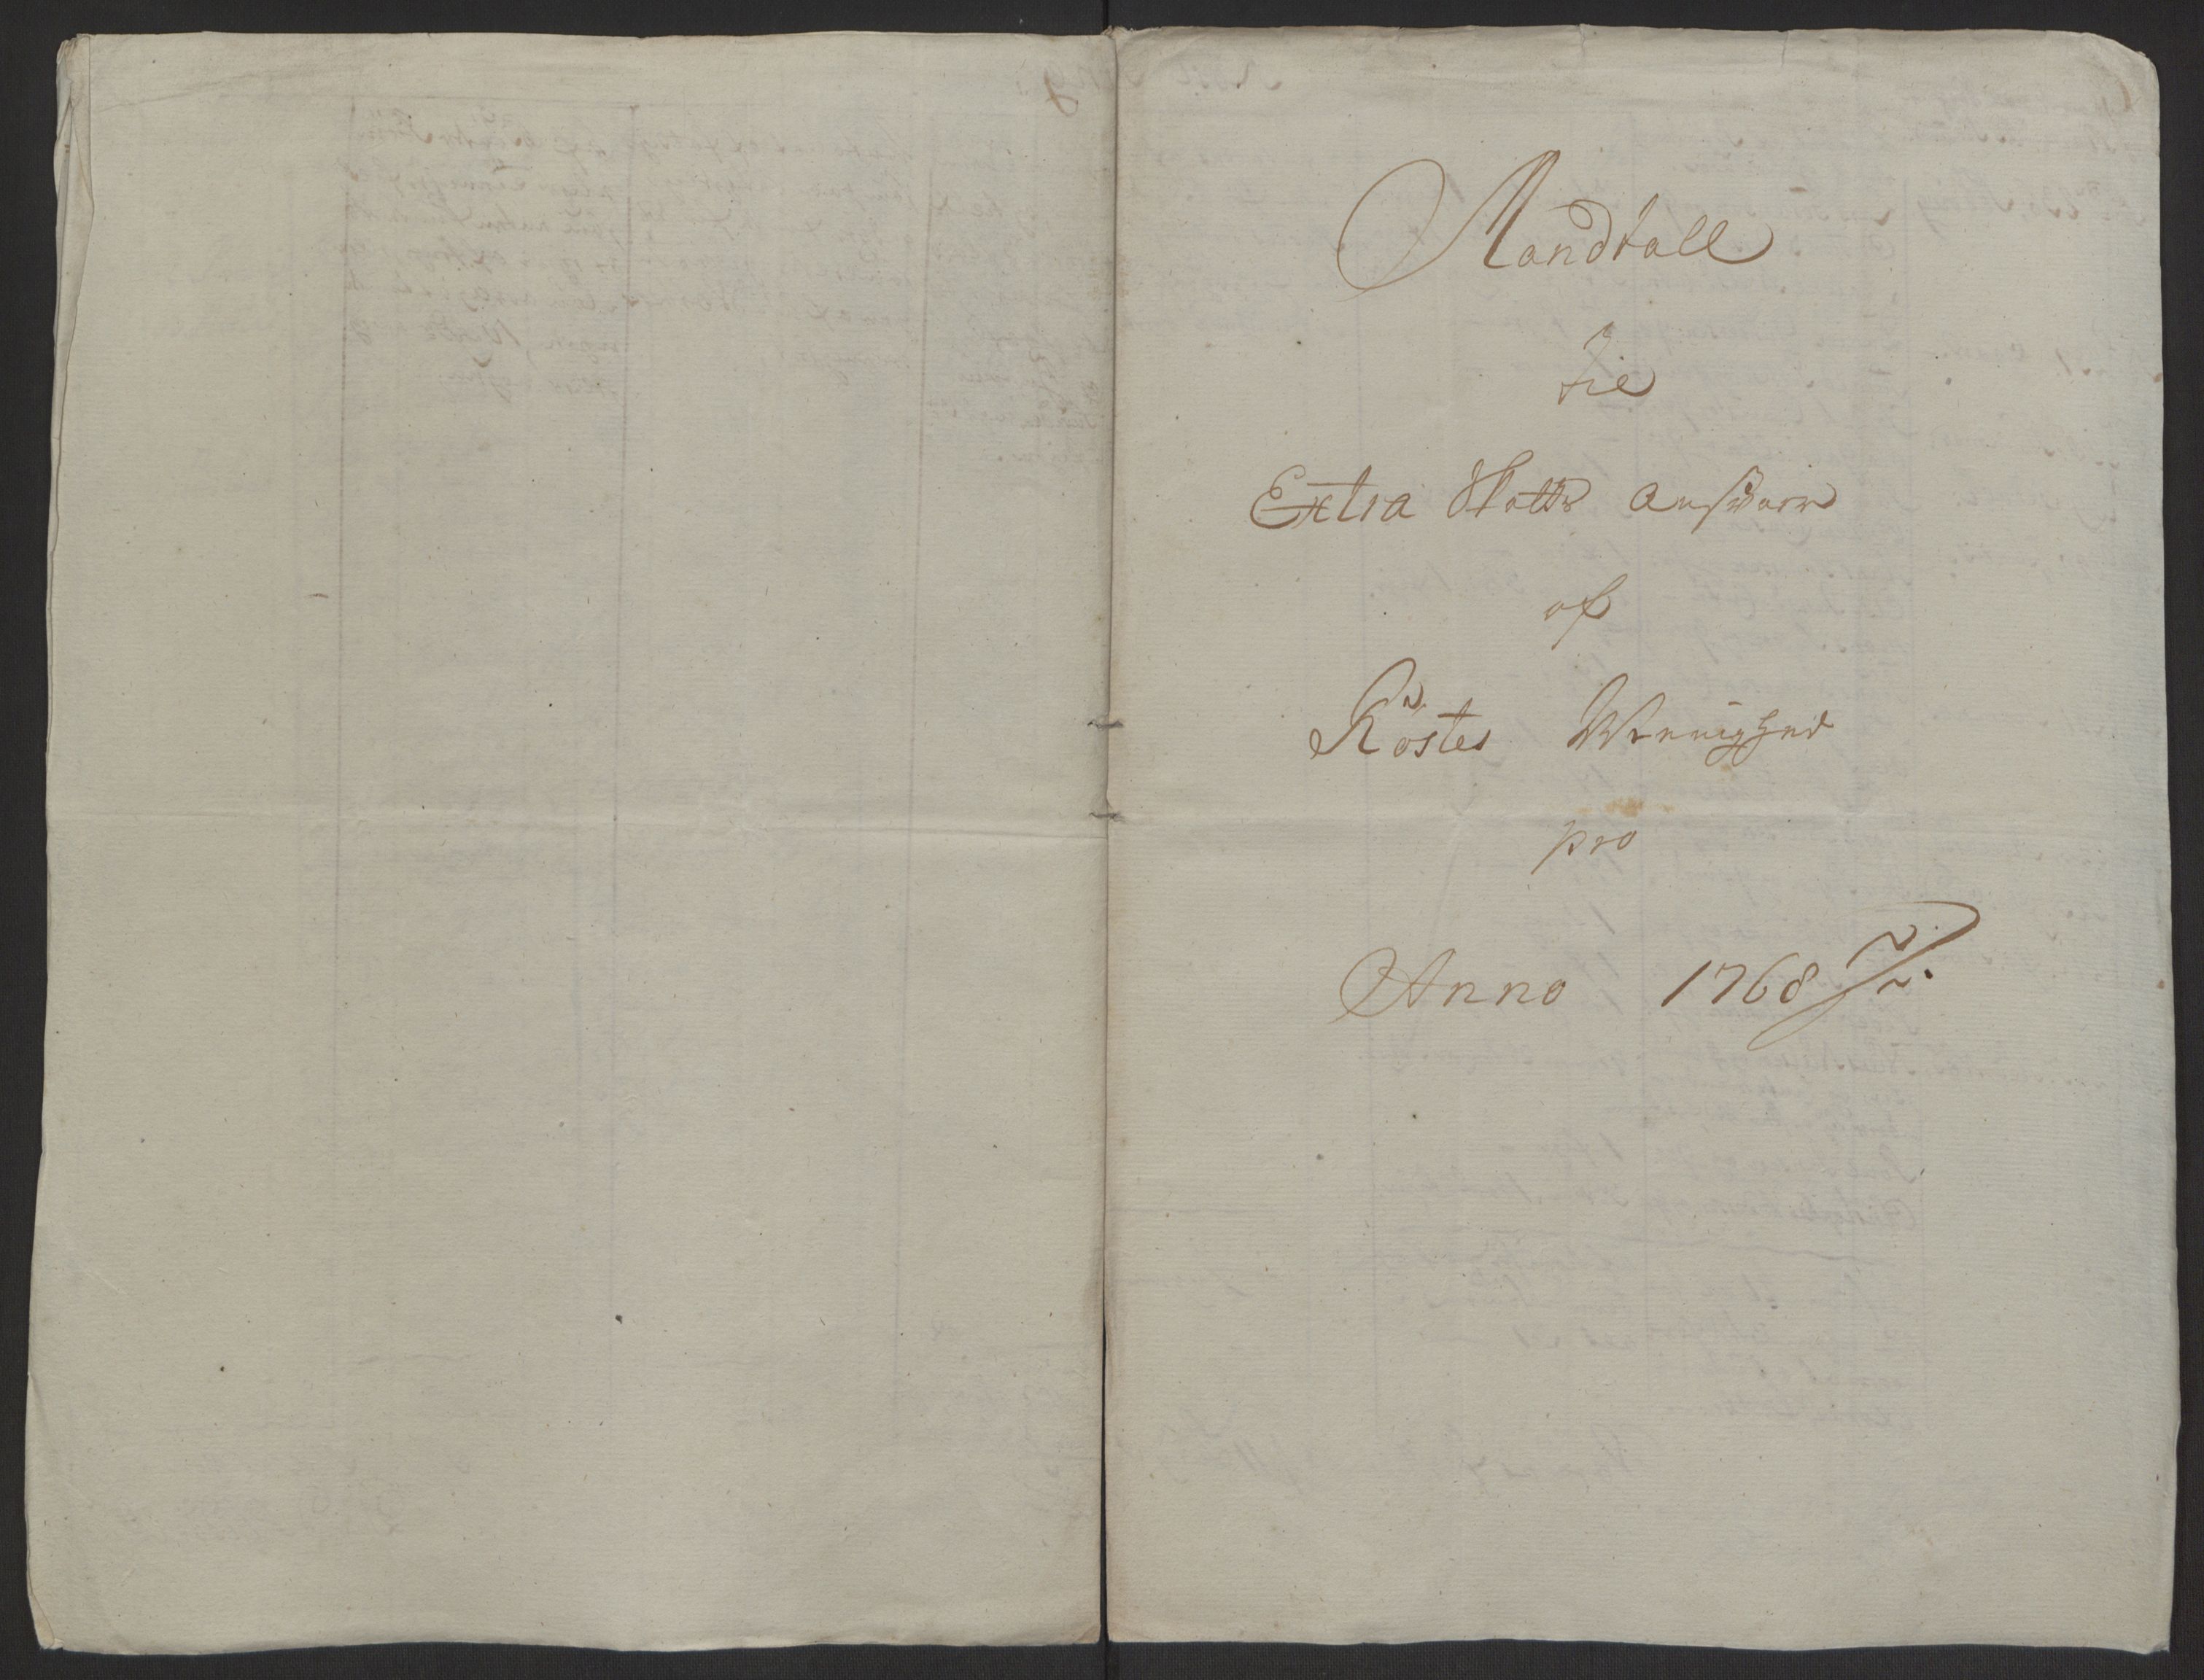 Mandtall
til
Extra Skatts ansvar
af
Röster Menighed
pro
Anno 1768